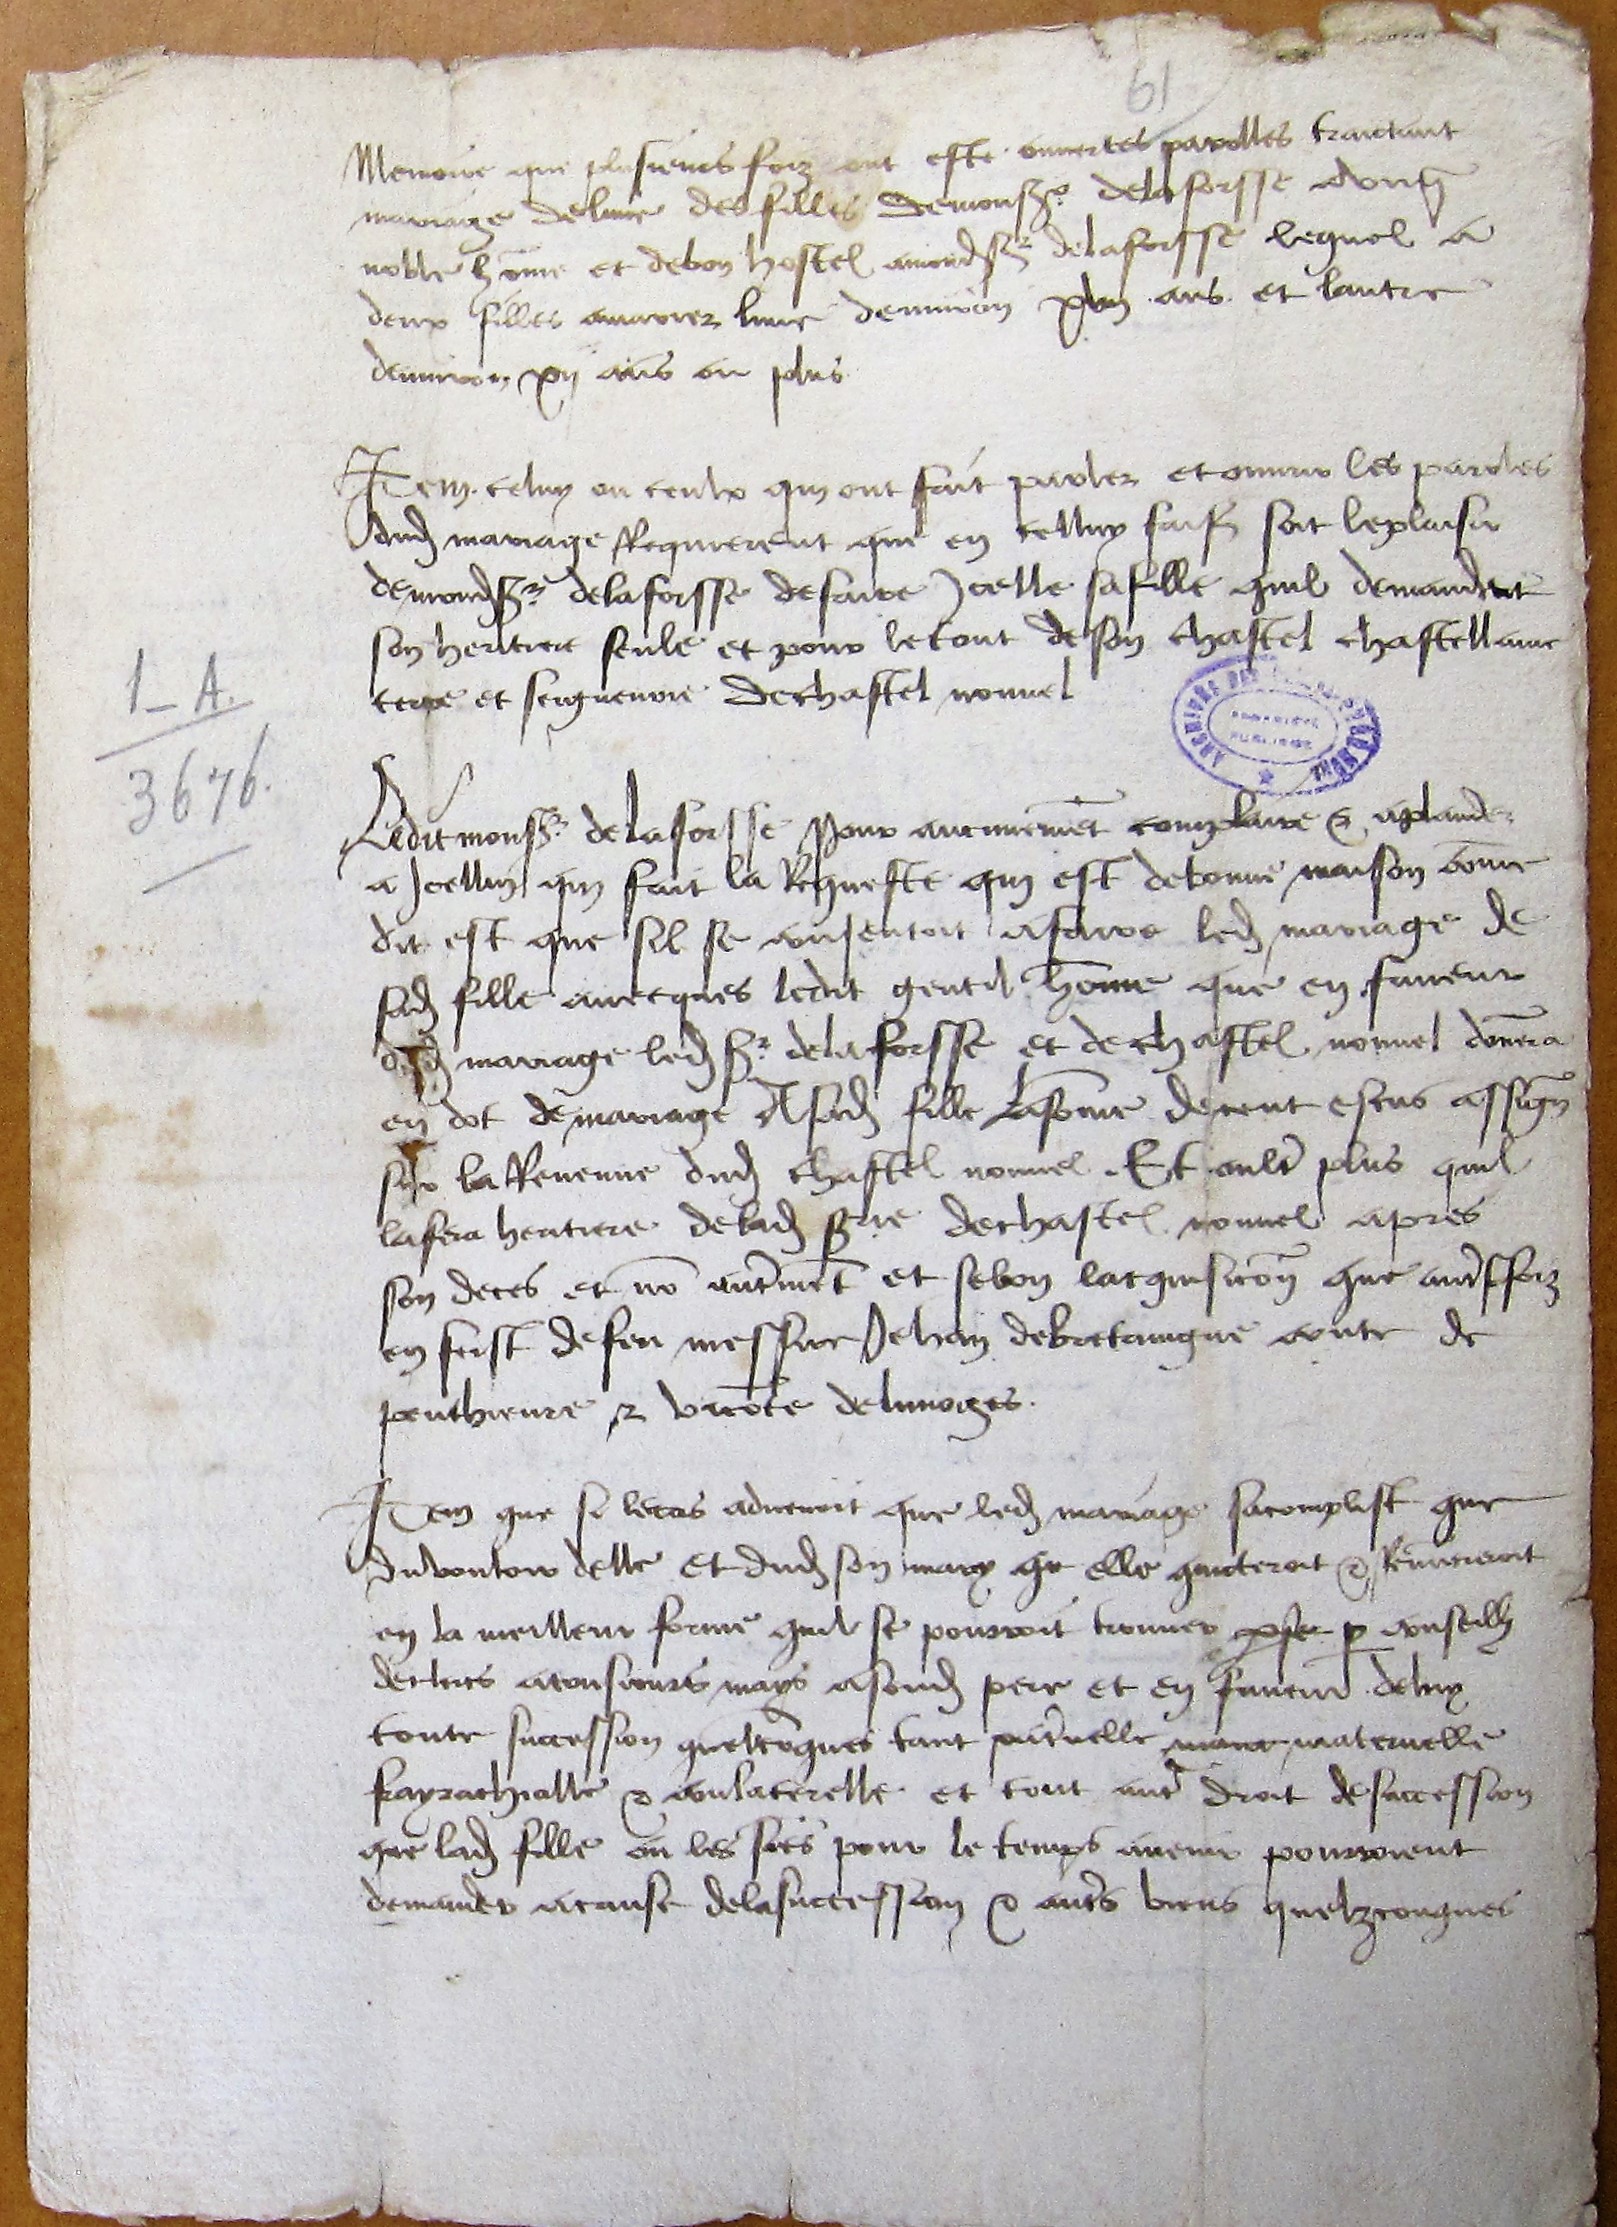 61
Memoire que plusieurs foiz ont este ouvertes parolles traictant
mariage de lune des filles de monsr de la forsse a ung
noble home et de bon hostel a mond sr de la forsse lequel a
deux filles a marier lune denviron xvii ans et lautre
denviron xii ans ou plus
Item celuy ou ceulx qui ont fait parler et ouvrir les paroles
dud mariage Requierent que en celluy faisn soit le plaisir
de mond sr de la forsse de faire Jcelle sa fille quil demandent
son heritiere seule et pour le tout de son chastel chastellanie
terre et seigneurie de chastel nouvel
1_A.
3676.
ARCHIVES DES
Ledit monsr de la forsse pour aucunemet complaire & aplauder
a Jcelluy qui fait la Requeste qui est de bonne maison come
dit est que sil se consentoit a faire led mariage de
sad fille avecques ledit gentil home que en faveur
dud mariage led sr de la forsse et de chastel nouvel donera
en dot de mariage A sad fille la some de cent escus assign
sur la Revenue dud chastel nouvel Et oultr plus quil
la fera heritiere de lad srie de chastel nouvel apres
son deces et no autrmet et selon lacquisicon que autrffoiz
en feist de feu messire Jehan de bretaingne conte de
penthievre & viconte de limoges
Item que si le cas advenoit que led mariage sacomplist que
du vouloir delle et dud son mary que elle quicteroit & Renunceroit
en la meilleur forme quil se pourroit trouver p conseilh
de clercs a tousiours mays a sond pere et en faveur de luy
toute succession quelconques tant paternelle maternelle
frayrachialle & coulaterelle et tout autr droit de succession
que lad fille ou les sies pour le temps avenir pourroient
demander a cause de la succession & autrs biens quelzconques